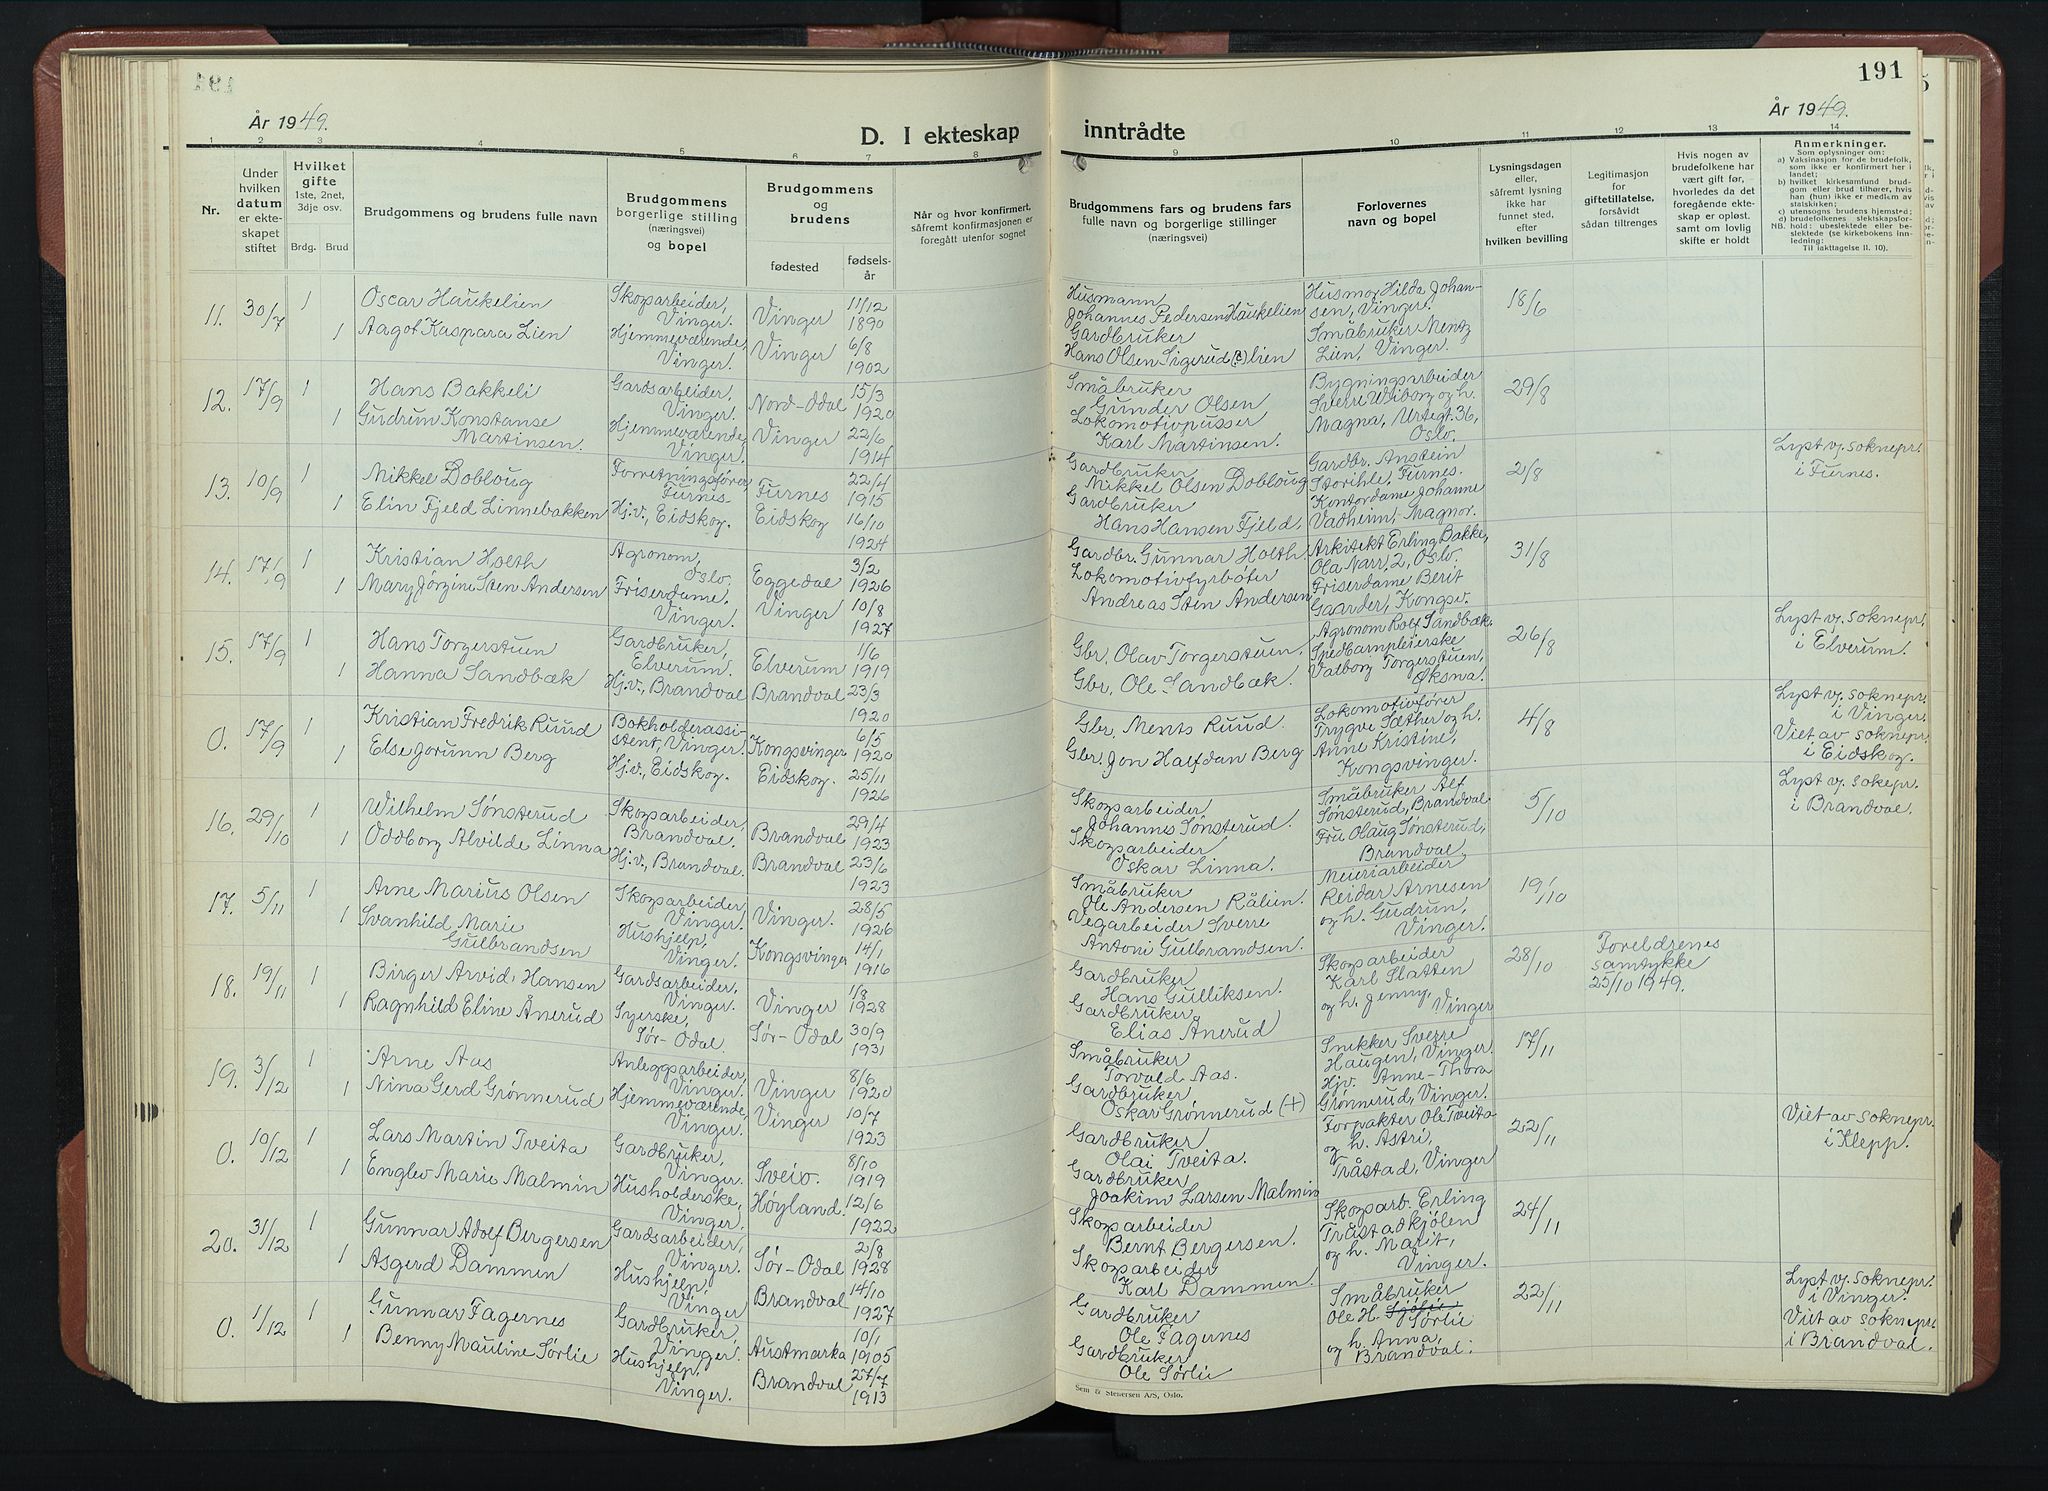 191
År 1949.
År 1949.
D. I ekteskap inntrådte
1 2 3 4 5 6 7 8 9 10 11 12 13 14
Nr.
Under
hvilken
datum
er ekte-
skapet
stiftet
Hvilket
gifte
1ste, 2net,
3dje osv.
Brdg. Brud
Brudgommens og brudens fulle navn
Brudgommens
borgerlige stilling
(næringsvei)
og bopel
Brudgommens
og
brudens
fødested
fødsels-
år
Når og hvor konfirmert,
såfremt konfirmasjonen er
foregått utenfor sognet
Brudgommens fars og brudens fars
fulle navn og borgerlige stillinger
(næringsvei)
Forlovernes
navn og bopel
Lysningsdagen
eller,
såfremt lysning
ikke har
funnet sted,
efter
hvilken bevilling
Legitimasjon
for
giftetillatelse,
forsåvidt
sådan tiltrenges
Hvis nogen av
brudefolkene har
vært gift før,
hvorledes da det
foregående ekte-
skap er opløst,
samt om lovlig
skifte er holdt
Anmerkninger.
Som oplysninger om:
a) Vaksinasjon for de brudefolk,
som ikke er konfirmert her i
landet;
b) hvilket kirkesamfund brud-
gom eller brud tilhører, hvis
han (hun) ikke er medlem av
statskirken;
c) utensogns brudens hjemsted;
d) brudefolkenes slektskapsfor-
hold: ubeslektede eller be-
slektede (se kirkebokens inn-
ledning:
Til iakttagelse II. 10).
11. 30/7 1 Oscar Haukelien Skogsarbeider, Vinger. Vinger 11/12 1890
1 Aagot Kaspara Lien Hjemmeværende, Vinger. Vinger 6/8 1902
Husmann
Johannes Pedersen Haukelien
Gardbruker
Hans Olsen Sigerud (e) lien
Husmor Hilda Johan-
sen, Vinger.
Småbruker Mentz
Lien, Vinger.
18/6
12. 17/9 1 Hans Bakkeli Gardsarbeider, Vinger. Nord-Odal 15/3 1920
1 Gudrun Konstanse Martinsen. Hjemmeværende, Vinger. Vinger 22/6 1914
Småbruker
Gunder Olsen
Lokomotivpusser
Karl Martinsen.
Bygningsarbeider
Sverre Wiborg og h.
Magna, Urtegt. 36,
Oslo.
29/8
13. 10/9 1 Mikkel Dobloug Forretningsfører, Furnes. Furnes 22/4 1915
1 Elin Fjeld Linnebakken Hj.v., Eidskog. Eidskog 16/10 1924
Gardbruker
Mikkel Olsen Dobloug
Gardbruker
Hans Hansen Fjeld.
Gardbr. Anstein
Storihle, Furnes.
Kontordame Johanne
Vadheim, Magnor.
2/8
Lyst v. soknepr.
i Furnes.
14. 17/9 1 Kristian Holth Agronom, Oslo. Eggedal 3/2 1926
1 Mary Jörgine Sten Andersen Friserdame, Vinger. Vinger 10/8 1927
Gardbr. Gunnar Holth.
Lokomotivfyrbøter
Andreas Sten Andersen
Arkitekt Erling Bakke,
Ola Narr, 2, Oslo.
Friserdame Berit
Gaarder, Kongsv.
31/8
15. 17/9 1 Hans Torgerstuen Gardbruker, Elverum. Elverum 1/6 1919
1 Hanna Sandbæk Hj.v., Brandval Brandval 23/3 1920
Gbr. Olav Torgerstuen.
Gbr. Ole Sandbæk.
Agronom Rolf Sandbæk.
Spedbarnpleierske
Valborg Torgerstuen,
Øksna.
26/8
Lyst v. soknepr.
i Elverum.
0. 17/9 1 Kristian Fredrik Ruud Bokholderassi-
stent, Vinger. Kongsvinger 6/5 1920
1 Else Jorunn Berg Hj.v., Eidskog. Eidskog. 25/11 1926
Gbr. Ments Ruud.
Gbr. Jon Halfdan Berg
Lokomotivfører
Trygve Sæther og h.
Anne Kristine,
Kongsvinger.
4/8
Lyst v. soknepr.
i Vinger.
Viet av soknepr.
i Eidskog.
16. 29/10 1 Wilhelm Sønsterud Skogsarbeider, Brandval. Brandval 29/4 1923
1 Oddborg Alvilde Linna Hj.v., Brandval. Brandval 23/6 1923
Skogsarbeider,
Johannes Sønsterud.
Skogsarbeider
Oskar Linna.
Småbruker Alf
Sønsterud, Brandval.
Fru Olaug Sønsterud,
Brandval.
5/10
Lyst v. sokepr.
i Brandval.
17. 5/11 1 Arne Marius Olsen Skogsarbeider, Vinger. Vinger. 28/5 1926
1 Svanhild Marie Gulbrandsen Hushjelp, Vinger. Kongsvinger 14/1 1916
Småbruker
Ole Andersen Rålien.
Vegarbeider Sverre
Antoni Gulbrandsen.
Meieriarbeider
Reidar Arnesen
og h. Gudrun,
Vinger.
19/10
18. 19/11 1 Birger Arvid Hansen Gardsarbeider, Vinger. Vinger 1/8 1928
1 Ragnhild Eline Ånerud Syerske, Sør-Odal. Sør-Odal 30/9 1931
Gardbruker
Hans Gulliksen.
Gardbruker,
Elias Ånerud
Skogsarbeider
Karl Slatten
og h. Jenny, Vinger
28/10
Foreldrenes
samtykke
25/10 1949.
19. 3/12 1 Arne Aas Anleggsarbeider, Vinger. Vinger 8/6 1920
1 Nina Gerd Grønnerud Hjemmeværende, Vinger. Vinger 10/7 1923
Småbruker
Torvald Aas.
Gardbruker,
Oskar Grønnerud (+)
Snekker Sverre
Haugen, Vinger.
Hjv. Anne-Thora
Grønnerud, Vinger.
17/11
0. 10/12 1 Lars Martin Tveita Gardbruker, Vinger. Sveio. 8/10 1919
1 Englev Marie Malmin Husholderske, Vinger. Høyland. 12/6 1922
Gardbruker,
Olai Tveita.
Gardbruker
Joakim Larsen Malmin
Forpakter Ole Tveita
og h. Astri,
Tråstad, Vinger
22/11
Viet av soknepr.
i Klepp.
20. 31/12 1 Gunnar Adolf Bergersen Gardsarbeider, Vinger. Sør-Odal 2/8 1928
1 Asgerd Dammen Hushjelp, Vinger Brandval 14/10 1927
Skogsarbeider
Bernt Bergersen.
Skogsarbeider
Karl Dammen.
Skogsarb. Erling
Tråstadkjølen
og h. Marit,
Vinger.
24/11
0. 1/12 1 Gunnar Fagernes Gardbruker, Vinger. Austmarka 10/1 1905
1 Benny Mauline Sørlie Hushjelp, Vinger. Brandval 27/7 1913
Gardbruker
Ole Fagernes
Gardbruker
Ole Sørlie
Småbruker
Ole H. Sørlie
og h. Anna,
Brandval.
22/11
Lyst v. soknepr.
i Vinger.
Viet av soknepr.
i Brandval.
Sem & Stenersen A/S, Oslo.